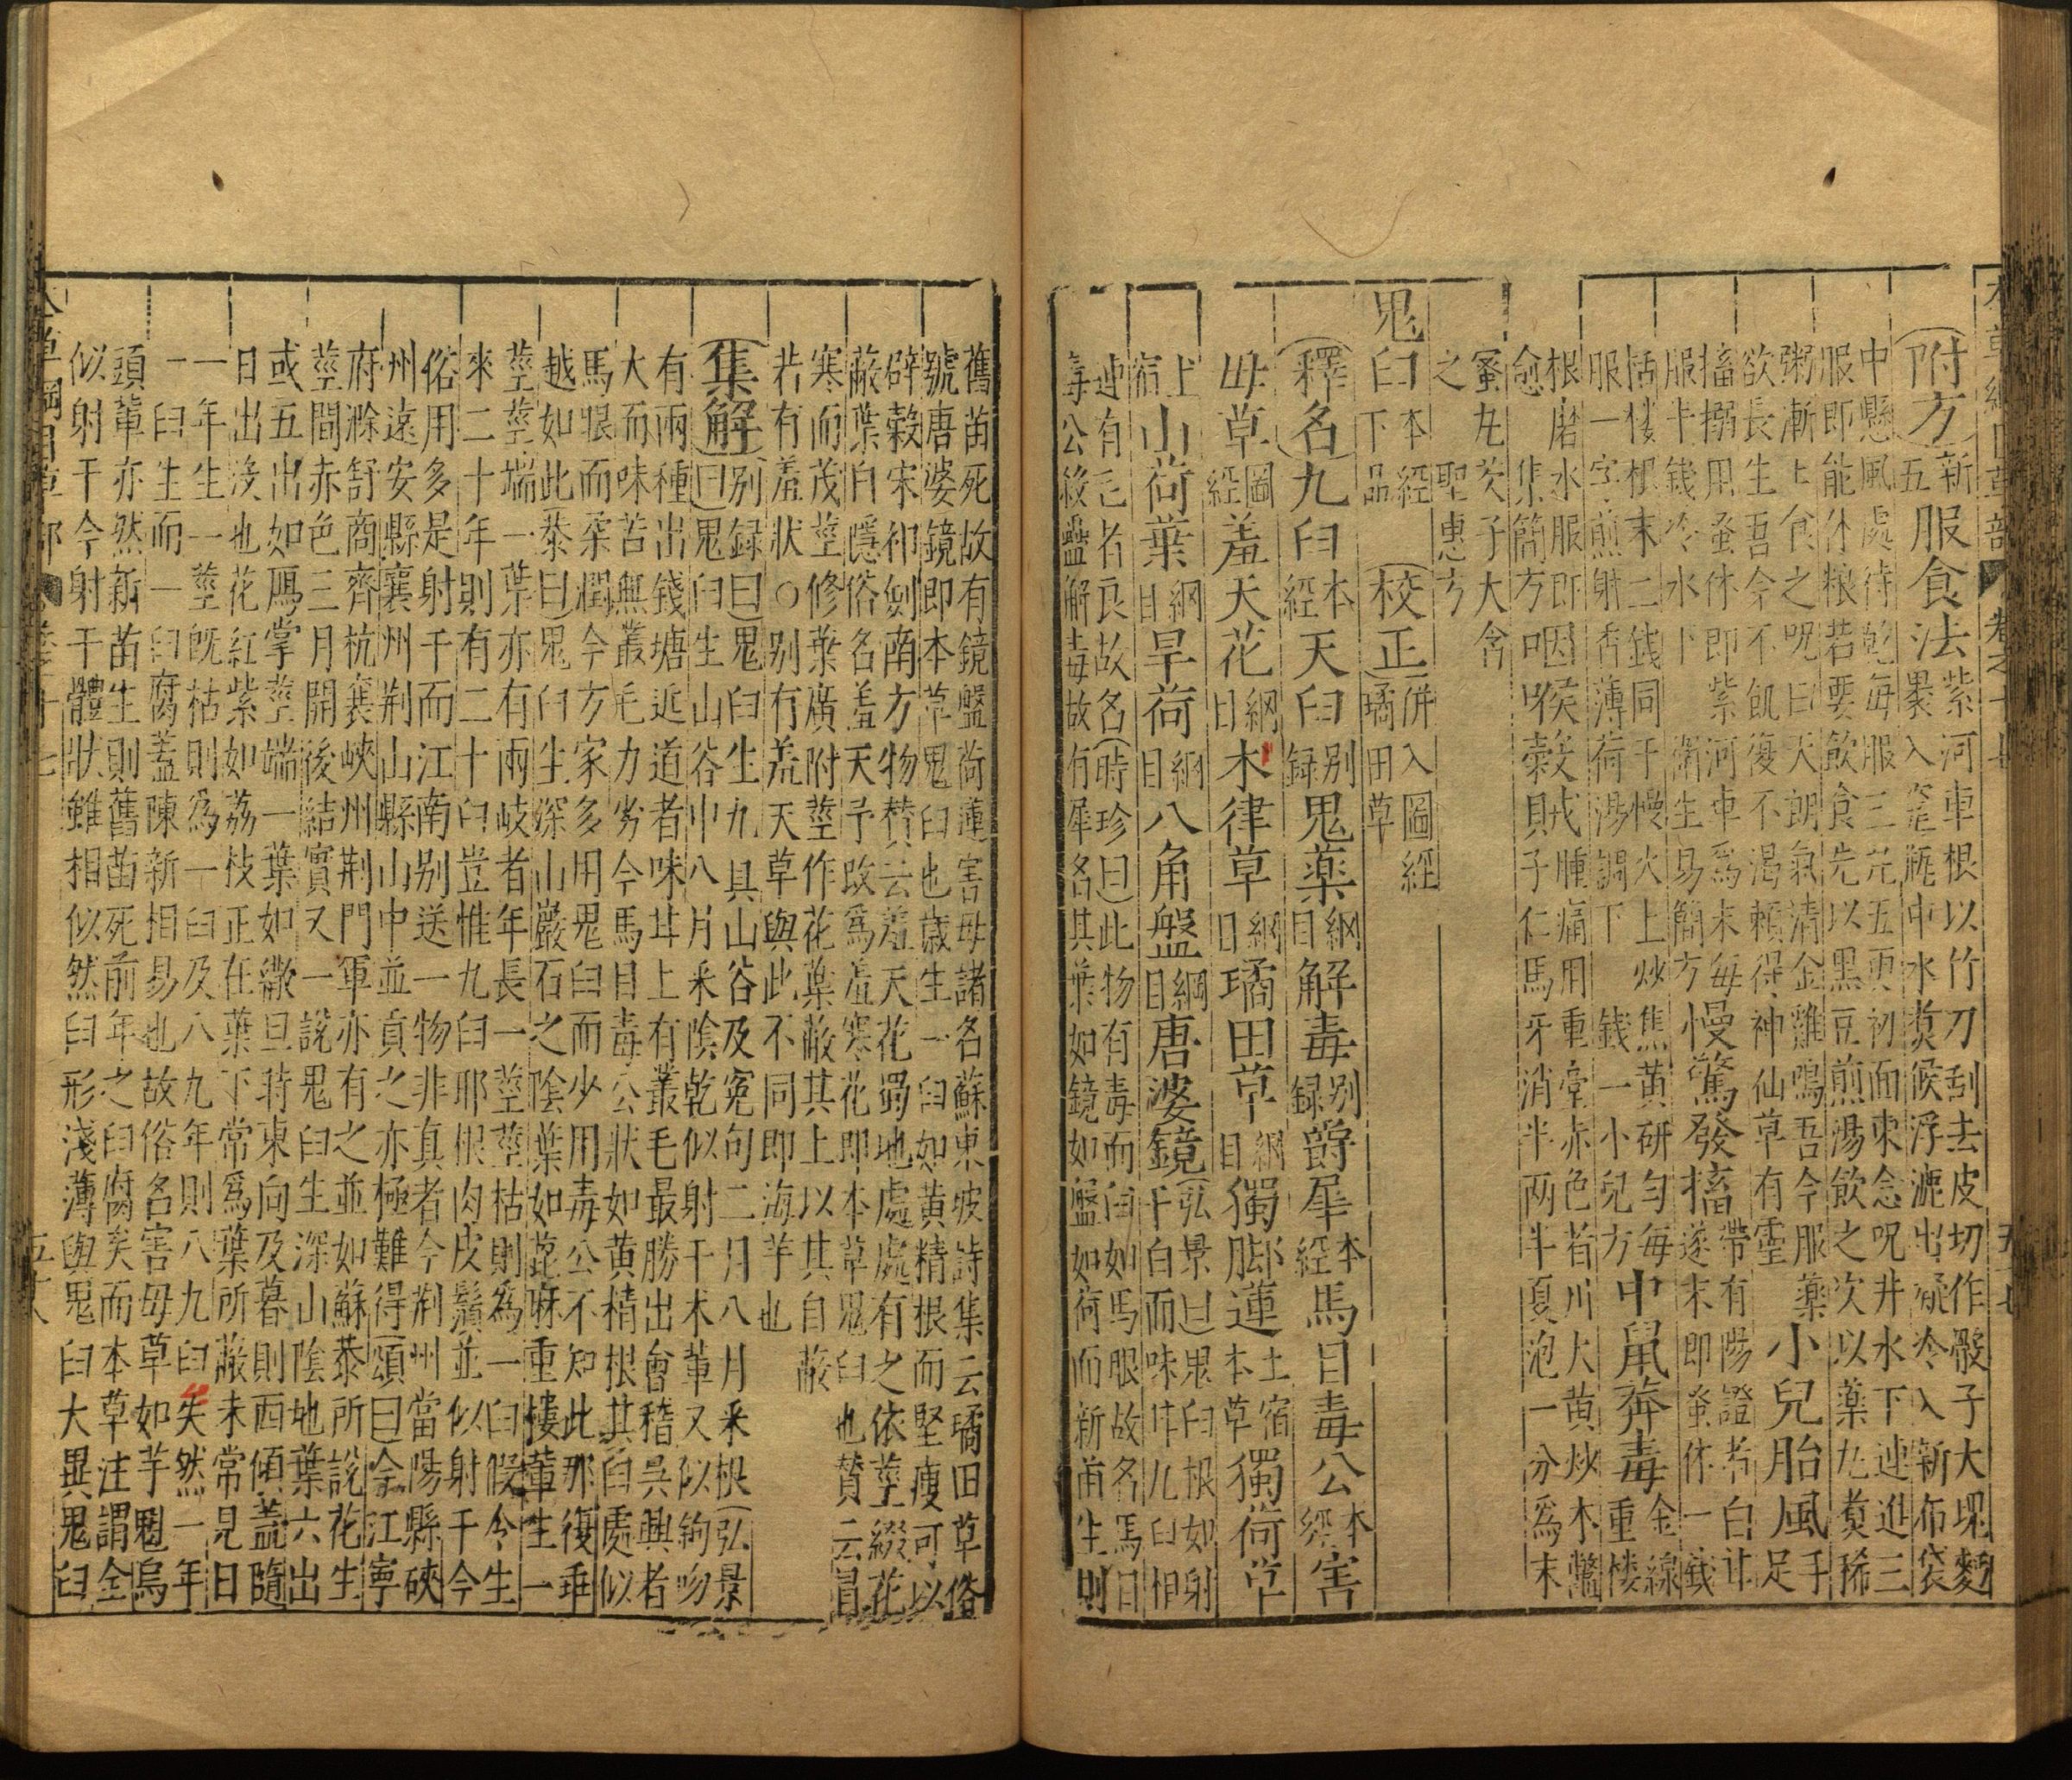 本草綱目草部 卷之十七 五十七
(附方)新五 服食法 紫河車根以竹刀刮去皮切作骰子大塊麪
裹入瓷瓶中水煑候浮漉出凝冷入新布袋
中懸風處待乾每服三丸五更初面東念呪井水下連進三
服即能休粮若要飲食先以黑豆煎湯飲之次以藥丸煑稀
粥漸上食之呪曰天朗氣清金雞鳴吾今服藥
欲長生吾今不飢復不渴賴得神仙草有靈 小兒胎風手足
搐搦用蚤休即紫河車爲末每
服半錢冷水下 衛生易簡方 慢驚發搐 帶有陽證者白甘
遂末即蚤休一錢
栝樓根末二錢同于慢火上炒焦黃研勻每
服一字煎麝香薄荷湯調下 錢乙小兒方 中鼠莽毒 金線
重樓
根磨水服即
愈 集簡方 咽喉穀賊腫痛用重臺赤色者川大黃炒木鱉
子仁馬牙消半兩半夏泡一分爲末
蜜丸芡子大含
之 聖惠方
鬼臼 本經下品 (校正)併入圖經璚田草
(釋名)九臼 本經 天臼 别録 鬼藥 綱目 解毒 别録 爵犀 本經 馬目毒公 本經 害
母草 圖經 羞天花 綱目 木律草 綱目 璚田草 綱目 獨脚蓮 土宿本草 獨荷草
土宿 山荷葉 綱目 旱荷 綱目 八角盤 綱目 唐婆鏡 (弘景曰)鬼臼根如射
干白而味甘九臼相
連有毛者良故名(時珍曰)此物有毒而臼如馬眼故名馬目
毒公殺蠱解毒故有犀名其葉如鏡如盤如荷而新苗生則
舊苗死故有鏡盤荷蓮害母諸名蘇東坡詩集云璚田草俗
號唐婆鏡即本草鬼臼也歲生一臼如黃精根而堅瘦可以
辟穀宋祁劍南方物賛云羞天花蜀地處處有之依莖綴花
蔽葉自隱俗名羞天予改爲羞寒花即本草鬼臼也賛云冒
寒而茂莖修葉廣附莖作花葉蔽其上以其自蔽
若有羞狀○别有羞天草與此不同即海芋也
(集解)(别録曰)鬼臼生九真山谷及冤句二月八月采根(弘景
曰)鬼臼生山谷中八月采陰乾似射干术軰又似鉤吻
有兩種出錢塘近道者味甘上有叢毛最勝出會稽吳興者
大而味苦無叢毛力劣今馬目毒公狀如黃精根其臼處似
馬眼而柔潤今方家多用鬼臼而少用毒公不知此那復乖
越如此(恭曰)鬼臼生深山巖石之陰葉如蓖麻重樓軰生一
莖莖端一葉亦有兩岐者年長一莖莖枯則爲一臼假令生
來二十年則有二十臼豈惟九臼耶根肉皮鬚並似射干今
俗用多是射干而江南别送一物非真者今荆州當陽縣硤
州遠安縣襄州荆山縣山中並貢之亦極難得(頌曰)今江寧
府滁舒商齊杭襄峽州荆門軍亦有之並如蘇恭所說花生
莖間赤色三月開後結實又一說鬼臼生深山陰地葉六出
或五出如鴈掌莖端一葉如繖旦時東向及暮則西傾蓋隨
日出没也花紅紫如荔枝正在葉下常爲葉所蔽未常見日
一年生一莖旣枯則爲一臼及八九年則八九臼矣然一年
一臼生而一臼腐蓋陳新相易也故俗名害母草如芋魁烏
頭軰亦然新苗生則舊苗死前年之臼腐矣而本草注謂全
似射干今射干體狀雖相似然臼形淺薄與鬼臼大異鬼臼
本草綱目草部 卷之十七 五十八